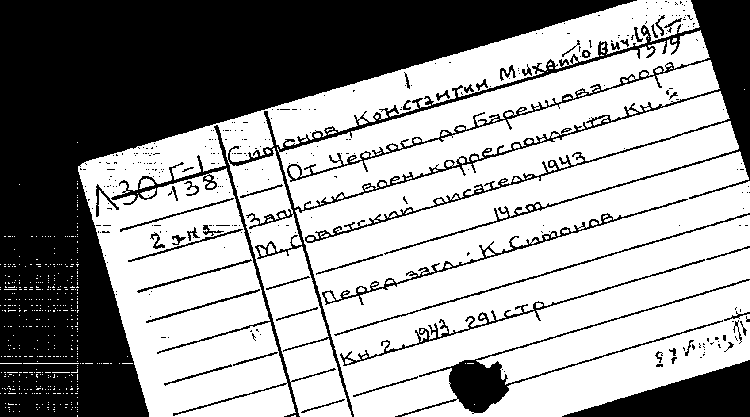 Симонов, Константин Михайлович 1915г
1979
Л30 Г-1
138
От Черного до Баренцова моря.
Записки воен. корреспондента. Кн. 2
2 экз.
М., Советский писатель, 1943
14 ст.
Перед загл.: К. Симонов.
Кн. 2. 1943. 291 стр.